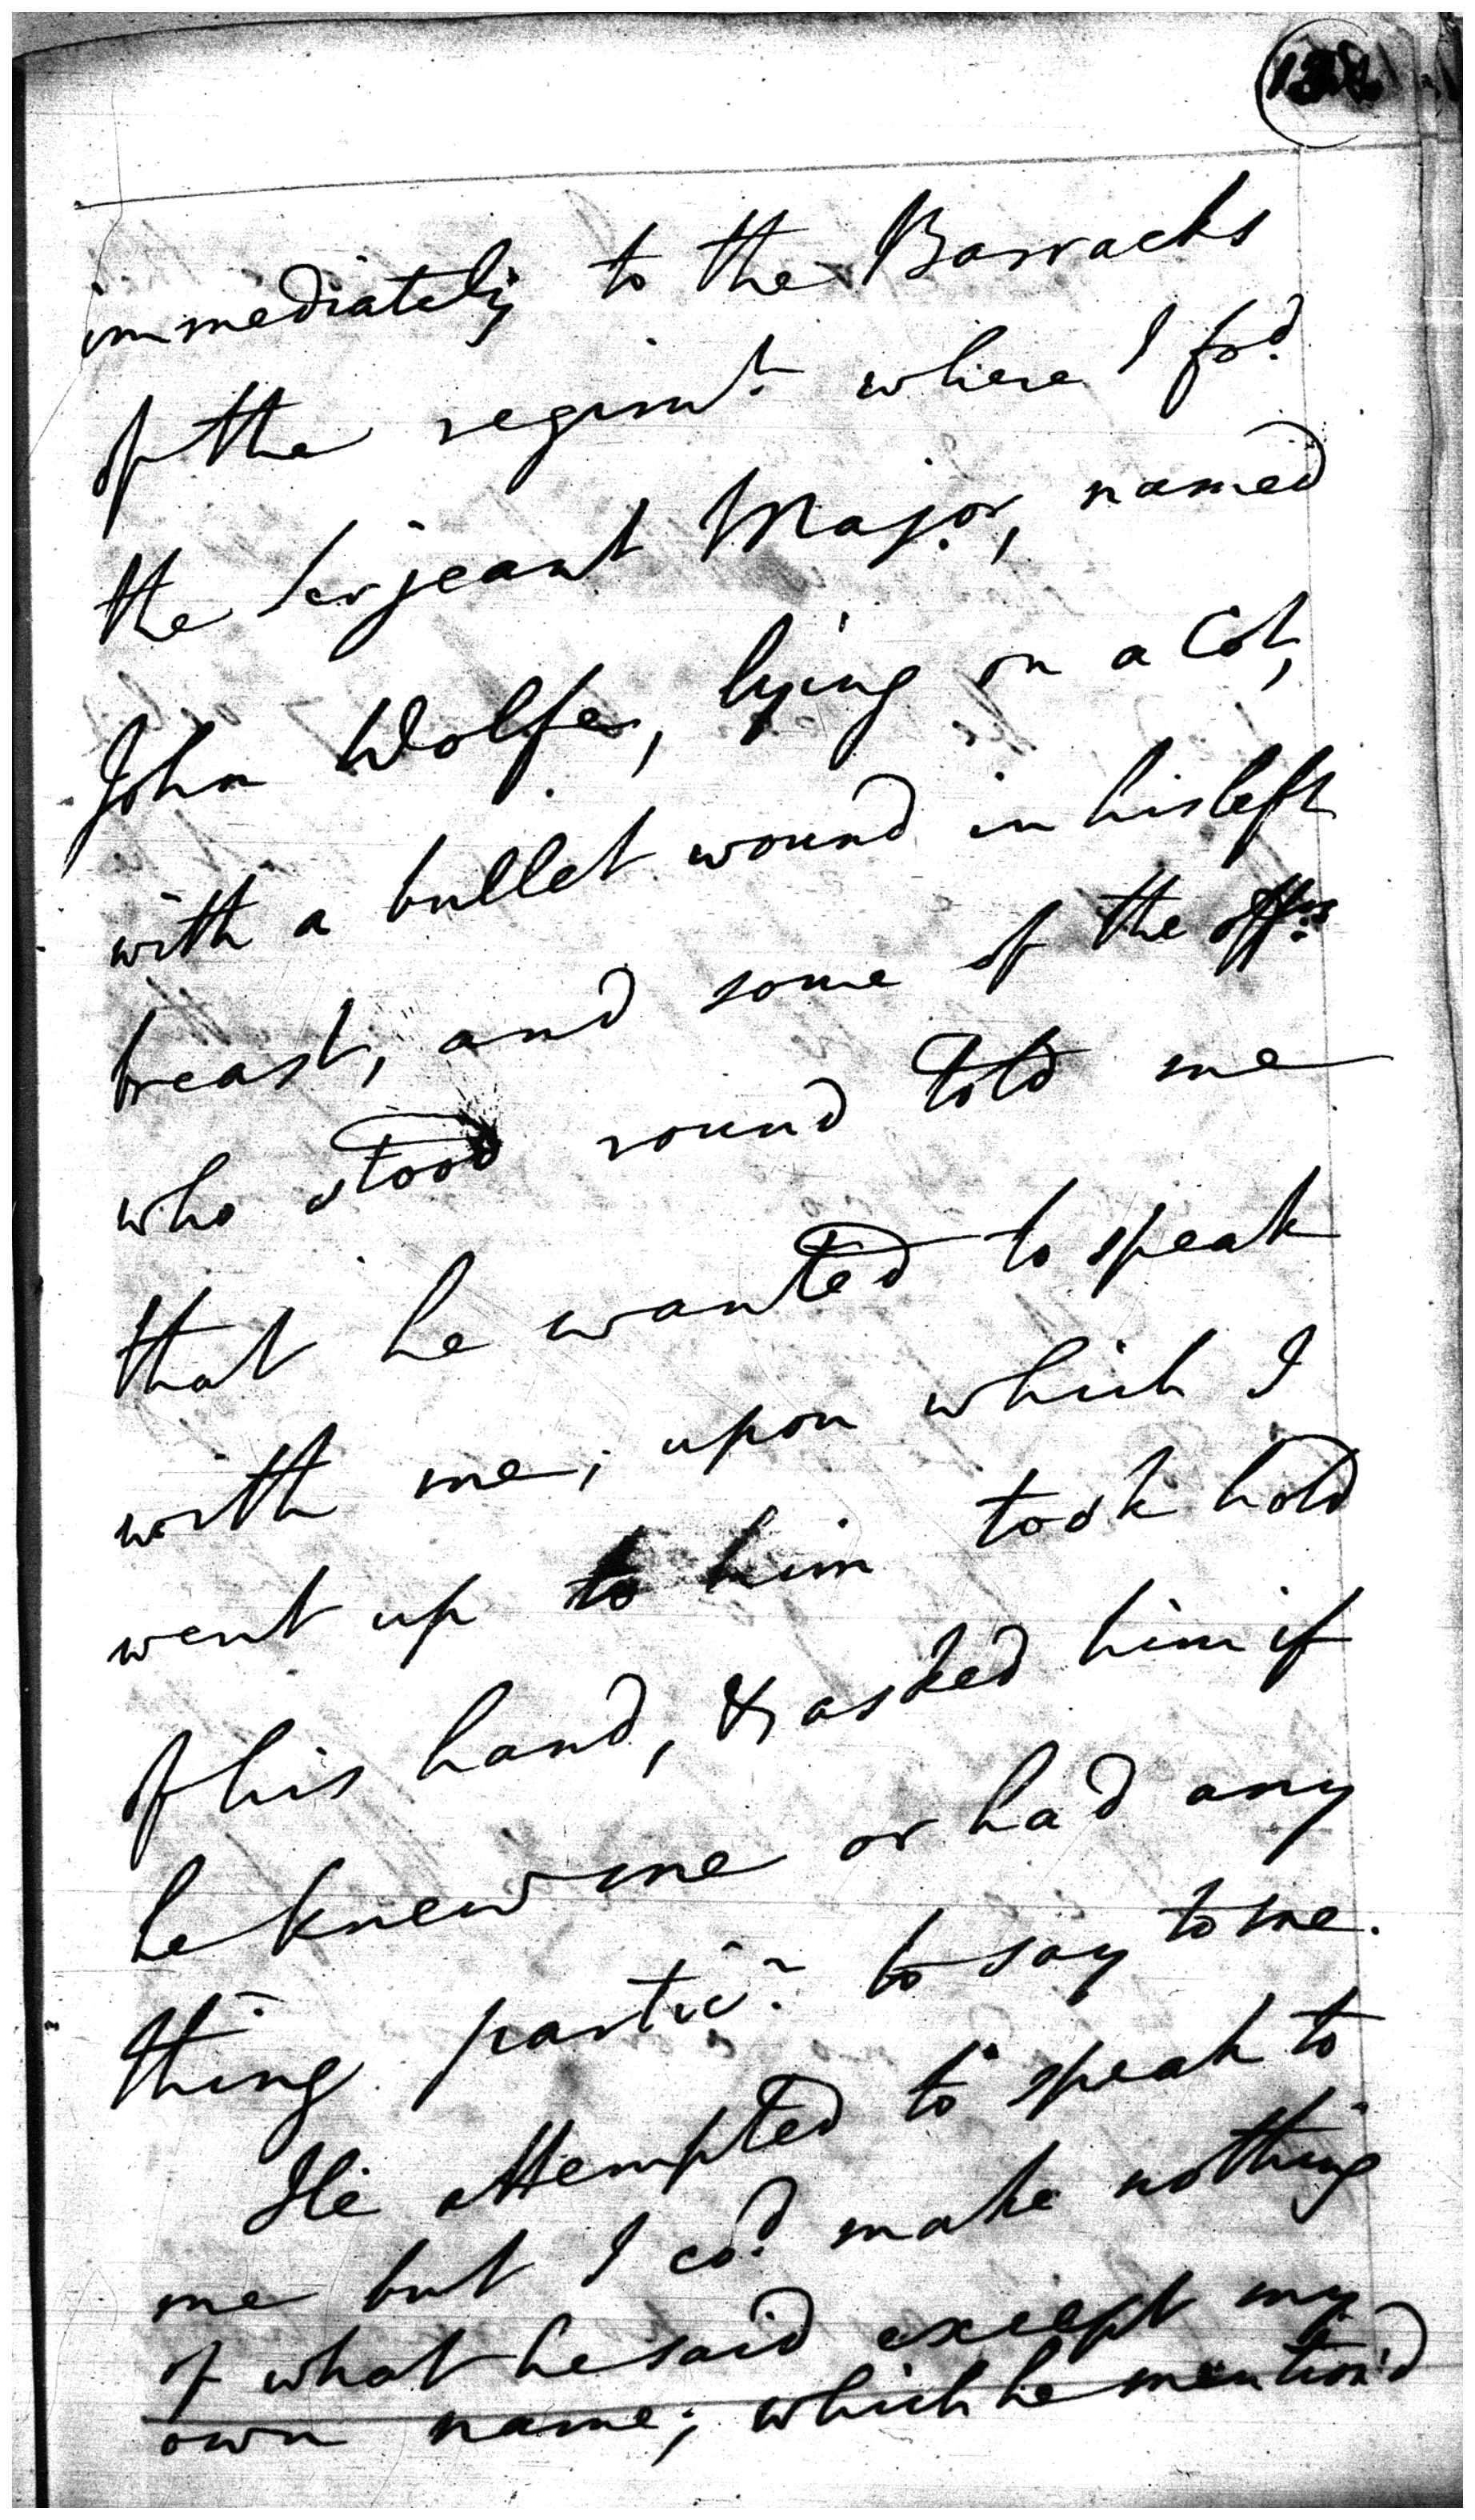 immediately to the Barracks
of the regimt. where I fod.
the Serjeant Major, named
John Wolfe, lying on a Cot,
with a bullet wound in his left
breast, and some of the offrs.
who stood round told me
that he wanted to speak
with me; upon which I
went up to him took hold
of his hand, & asked him if
he knew me or had any
thing particr. to say to me.
He attempted to speak to
me but I cod. make nothing
of what he said except my
own name; which he mention'd